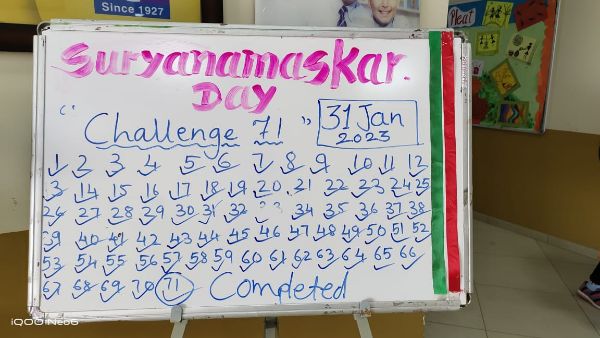 Since 1927
Meat
Suryanamaskar.
DAY
"Challenge 71"
31 Jan
2023
1 2 3 4 5 6 7 8 9 10 11 12
3 14 15 16 17 18 19 20 21 22 23 24 25
26 27 28 29 30 31 32 33 34 35 36 37 38
39 40 41 42 43 44 45 46 47 48 49 50 51 52
53 54 55 56 57 58 59 60 61 62 63 64 65 66
67 68 69 70 71 Completed
iQOO Neo6